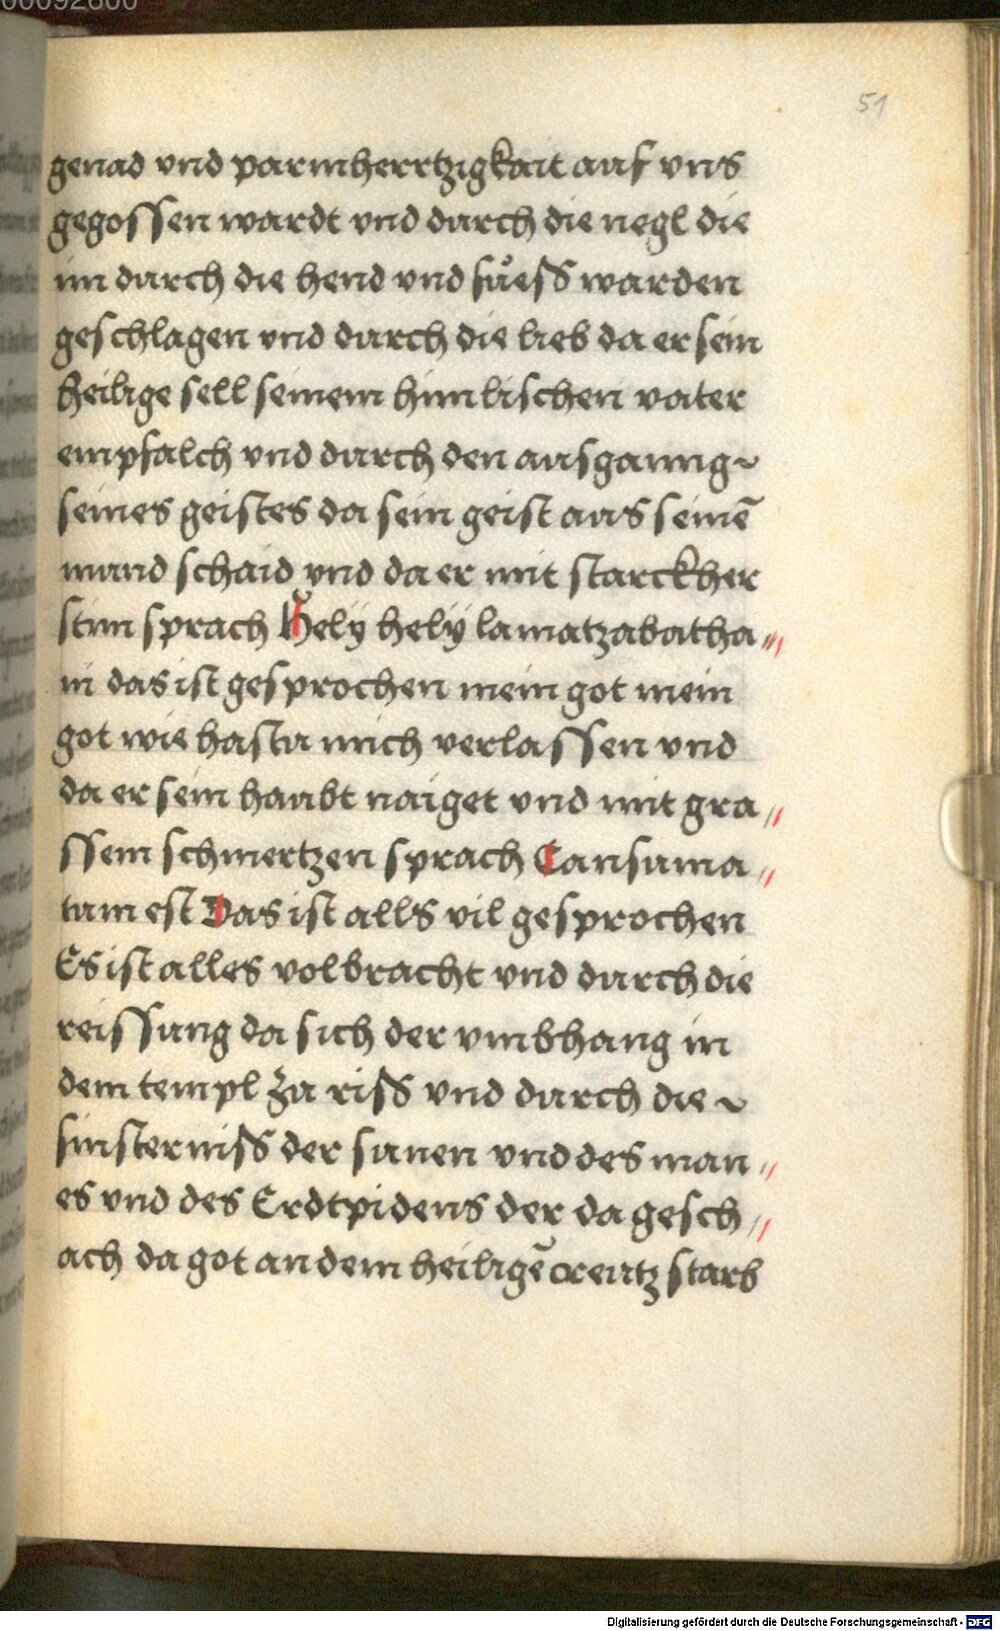 00092600
51
genad vnd parmhertzigkait auf vns
gegossen wardt vnd durch die negl die
im durch die hend vnd füess warden
geschlagen vnd durch die lieb da er sein
heilige sell seinem himlischen vater
empfalch vnd durch den ausganng
seines geistes da sein geist aus seinē
mund schaid vnd da er mit starckher
stim sprach Hely hely lamatzabatha〃
ni das ist gesprochen mein got mein
got wie hastu mich verlassen vnd
da er sein haubt naiget vnd mit gro〃
ssem schmertzen sprach Consuma〃
tum est Das ist alls vil gesprochen
Es ist alles volbracht vnd durch die
reissung da sich der vmbhang in
dem templ zu riss vnd durch die
finsterniss der sunen vnd des man〃
es vnd des Erdtpidens der da gesch〃
ach da got an dem heiligē creutz starb
Digitalisierung gefördert durch die Deutsche Forschungsgemeinschaft - DFG